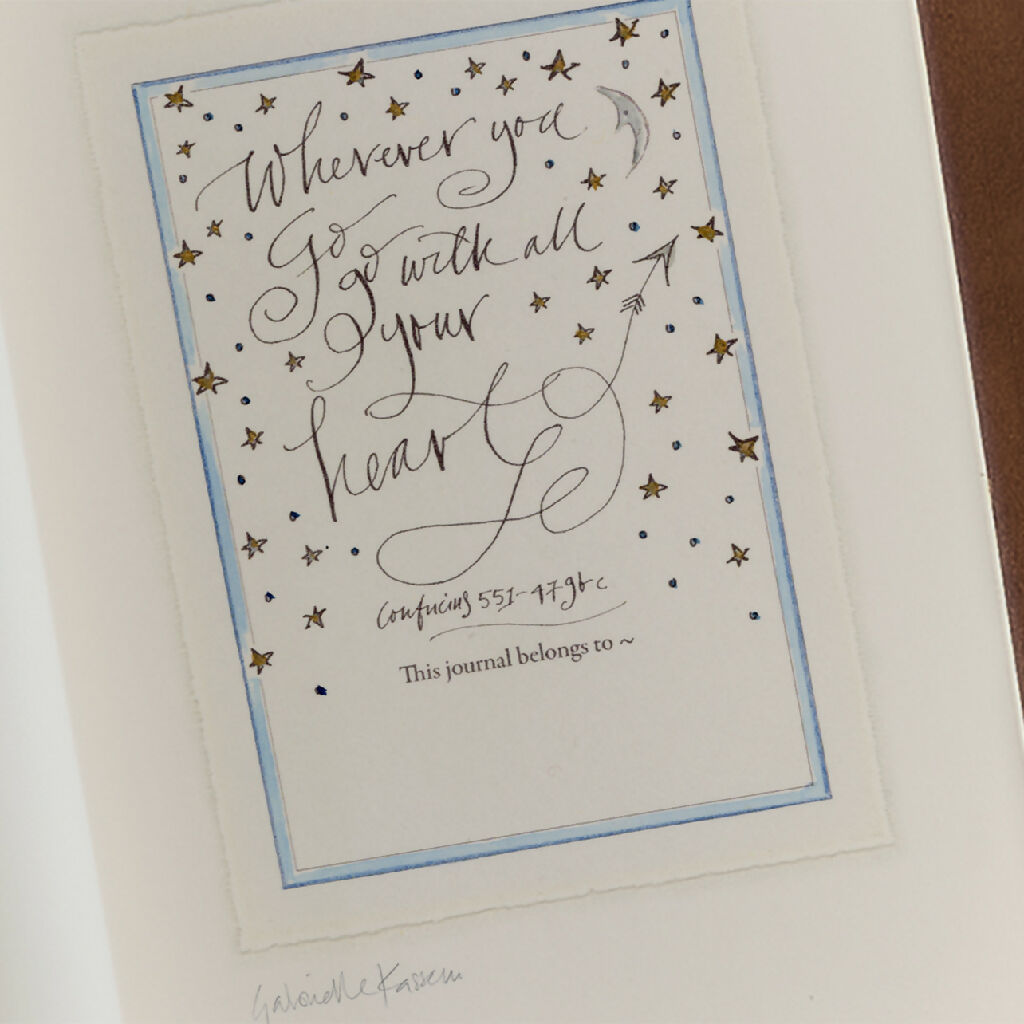 Wherever you
Go
go with all
your
heart
Confucius 551-479b c
This journal belongs to ~
Gabrielle